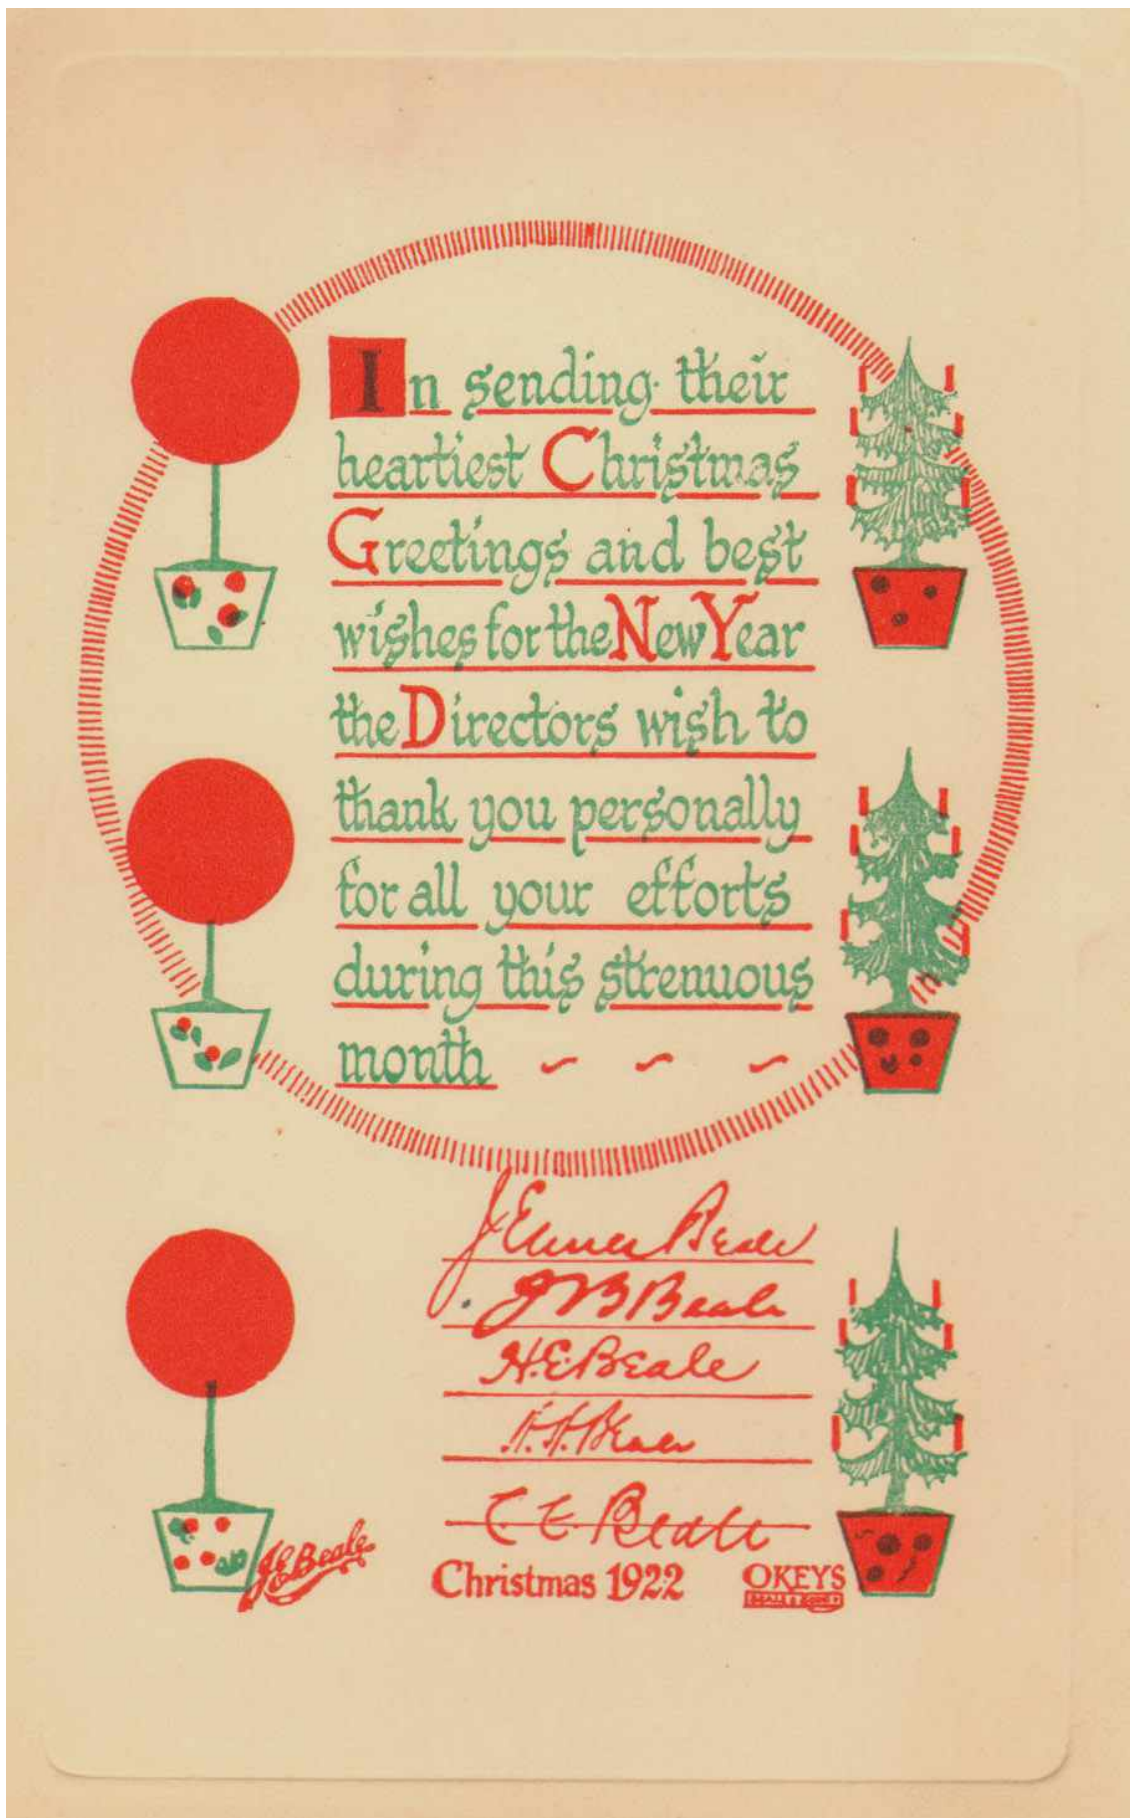 In sending their
heartiest Christmas
Greetings and best
wishes for the New Year
the Directors wish to
thank you personally
for all your efforts
during this strenuous
month
J Elmer Beale
J B Beale
H.E. Beale
H. Beale
C E. Beale
JEBeale
Christmas 1922
OKEYS